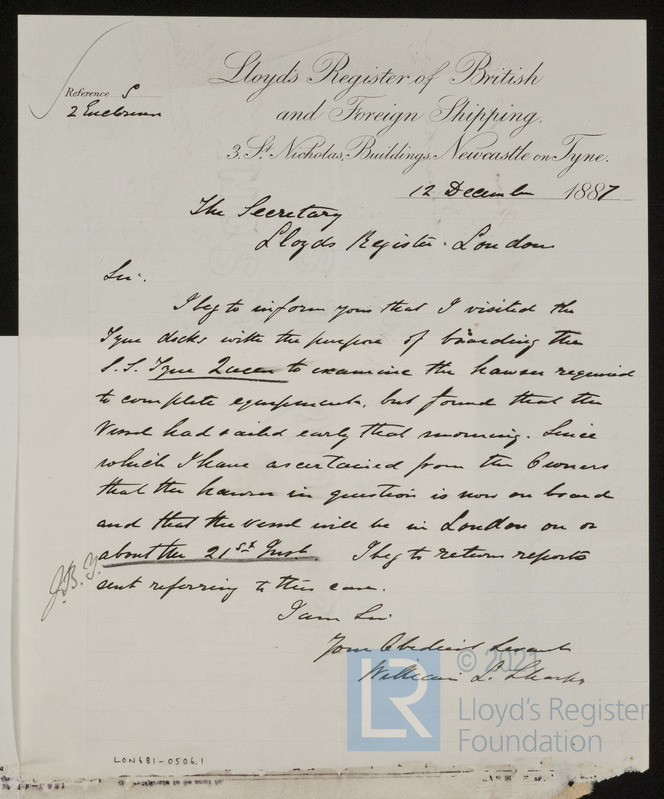 Lloyd's Register of British
and Foreign Shipping.
3, St. Nicholas, Buildings, Newcastle on Tyne.
Reference S
2 Enclosures
12 December 1887
The Secretary
Lloyds Register. London
Sir.
I beg to inform you that I visited the
Tyne docks with the purpose of boarding the
S.S. Tyne Queen to examine the hawser required
to complete equipment, but found that the
Vessel had sailed early that morning. Since
which I have ascertained from the Owners
that the hawser in question is now on board
and that the vessel will be in London on or
about the 21st Inst. I beg to return reports
sent referring to this case.
J.B.Y.
I am Sir
Your Obedient Servant
William L. Sharp
© 2021
LR
Lloyd's Register
Foundation
LON681-0506.1